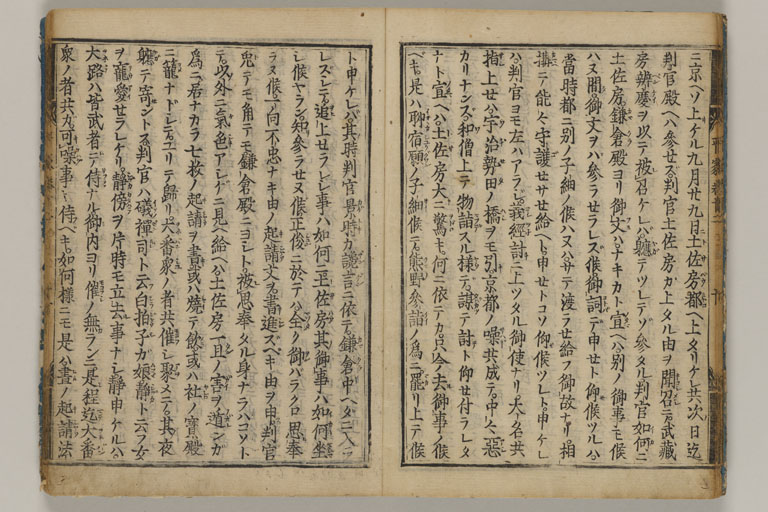 三京ヘソ上ケル九月廿九日土佐房都ヘ上タリケレ共次ノ日迄
判官殿ヘハ参セス判官土佐房カ上タル由ヲ聞召テ武藏
房辨慶ヲ以テ被召ケレハ軈テツレテソ参タル判官如何ニ
土佐房鎌倉殿ヨリ御文ハナキカト宣ヘハ別ノ御事モ候
ハヌ間御文ヲハ参ラセラレス候御詞テ申セト仰候ツルハ
當時都ニ別ノ子細ノ候ハヌハサテ渡ラセ給フ御故ナリ相
構テ能々守護セサセ給ヘト申セトコソ仰候ツレト申ケレ
ハ判官ヨモ左ハアラシ義經討ニ上ツタル御使ナリ大名共
指上セハ宇治勢田ノ橋ヲモ引京都ノ噪共成テ中々惡
カリナンス和僧上テ物詣スル様テ謀テ討ト仰セ付ラレタ
ナト宣ヘハ土佐房大ニ驚テ何ニ依テカ只今去御事ノ候
ヘキ是ハ聊宿願ノ子細候テ熊野参詣ノ爲ニ罷リ上テ候
ト申ケレハ其時判官景時カ讒言ニ依テ鎌倉中ヘタニ入ラ
レスシテ追上セラレシ事ハ如何ニ土佐房其御事ハ如何坐
シ候ヤラン知参ラセヌ候正俊ニ於テハ全ク御ハラクロ思奉
ラヌ候一向不忠ナキ由ノ起請文ヲ書進スヘキ由ヲ申判官
鬼テモ角テモ鎌倉殿ニヨシト被思奉タル身ナラハコソト
テ以外ニ氣色アシケニ見ヘ給ヘハ土佐房一旦ノ害ヲ遁ンカ
爲ニ居ナカラ七枚ノ起請ヲ書或ハ燒テ飲或ハ社ノ寳殿
ニ籠ナトシテユリテ歸リ大番衆ノ者共催シ聚メテ其夜
軈テ寄ントス判官ハ磯禪司ト云白拍子カ娘静ト云フ女
ヲ寵愛セラレケリ静傍ヲ片時モ立去事ナシ静申ケルハ
大路ハ皆武者テ侍ナル御内ヨリ催ノ無ランニ是程迄大番
衆ノ者共カ可噪事ヤ侍ヘキ如何樣ニモ是ハ晝ノ起請法